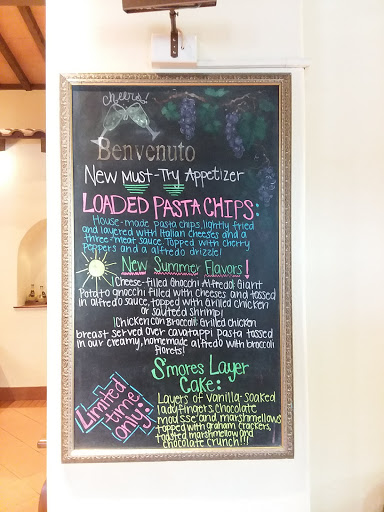 cheers!
Benvenuto
New Must-Try Appetizer
LOADED PASTA CHIPS:
House-made pasta chips, lightly fried
and layered with Italian cheeses and a
three-meat sauce. Topped with cherry
peppers and a alfredo drizzle!
New Summer Flavors!
!Cheese-filled Gnocchi Alfredo: Giant
Potato gnocchi filled with cheeses and tossed
in alfredo sauce, topped with grilled chicken
or sauteed shrimp!
!Chicken con Broccoli: Grilled chicken
breast served over cavatappi pasta tossed
in our creamy, homemade alfredo with broccoli
florets!
S'mores Layer
Cake:
Limited
time
only!
Layers of vanilla-soaked
ladyfingers, chocolate
mousse and marshmellows
topped with graham crackers,
toasted marshmellow and
chocolate crunch!!!